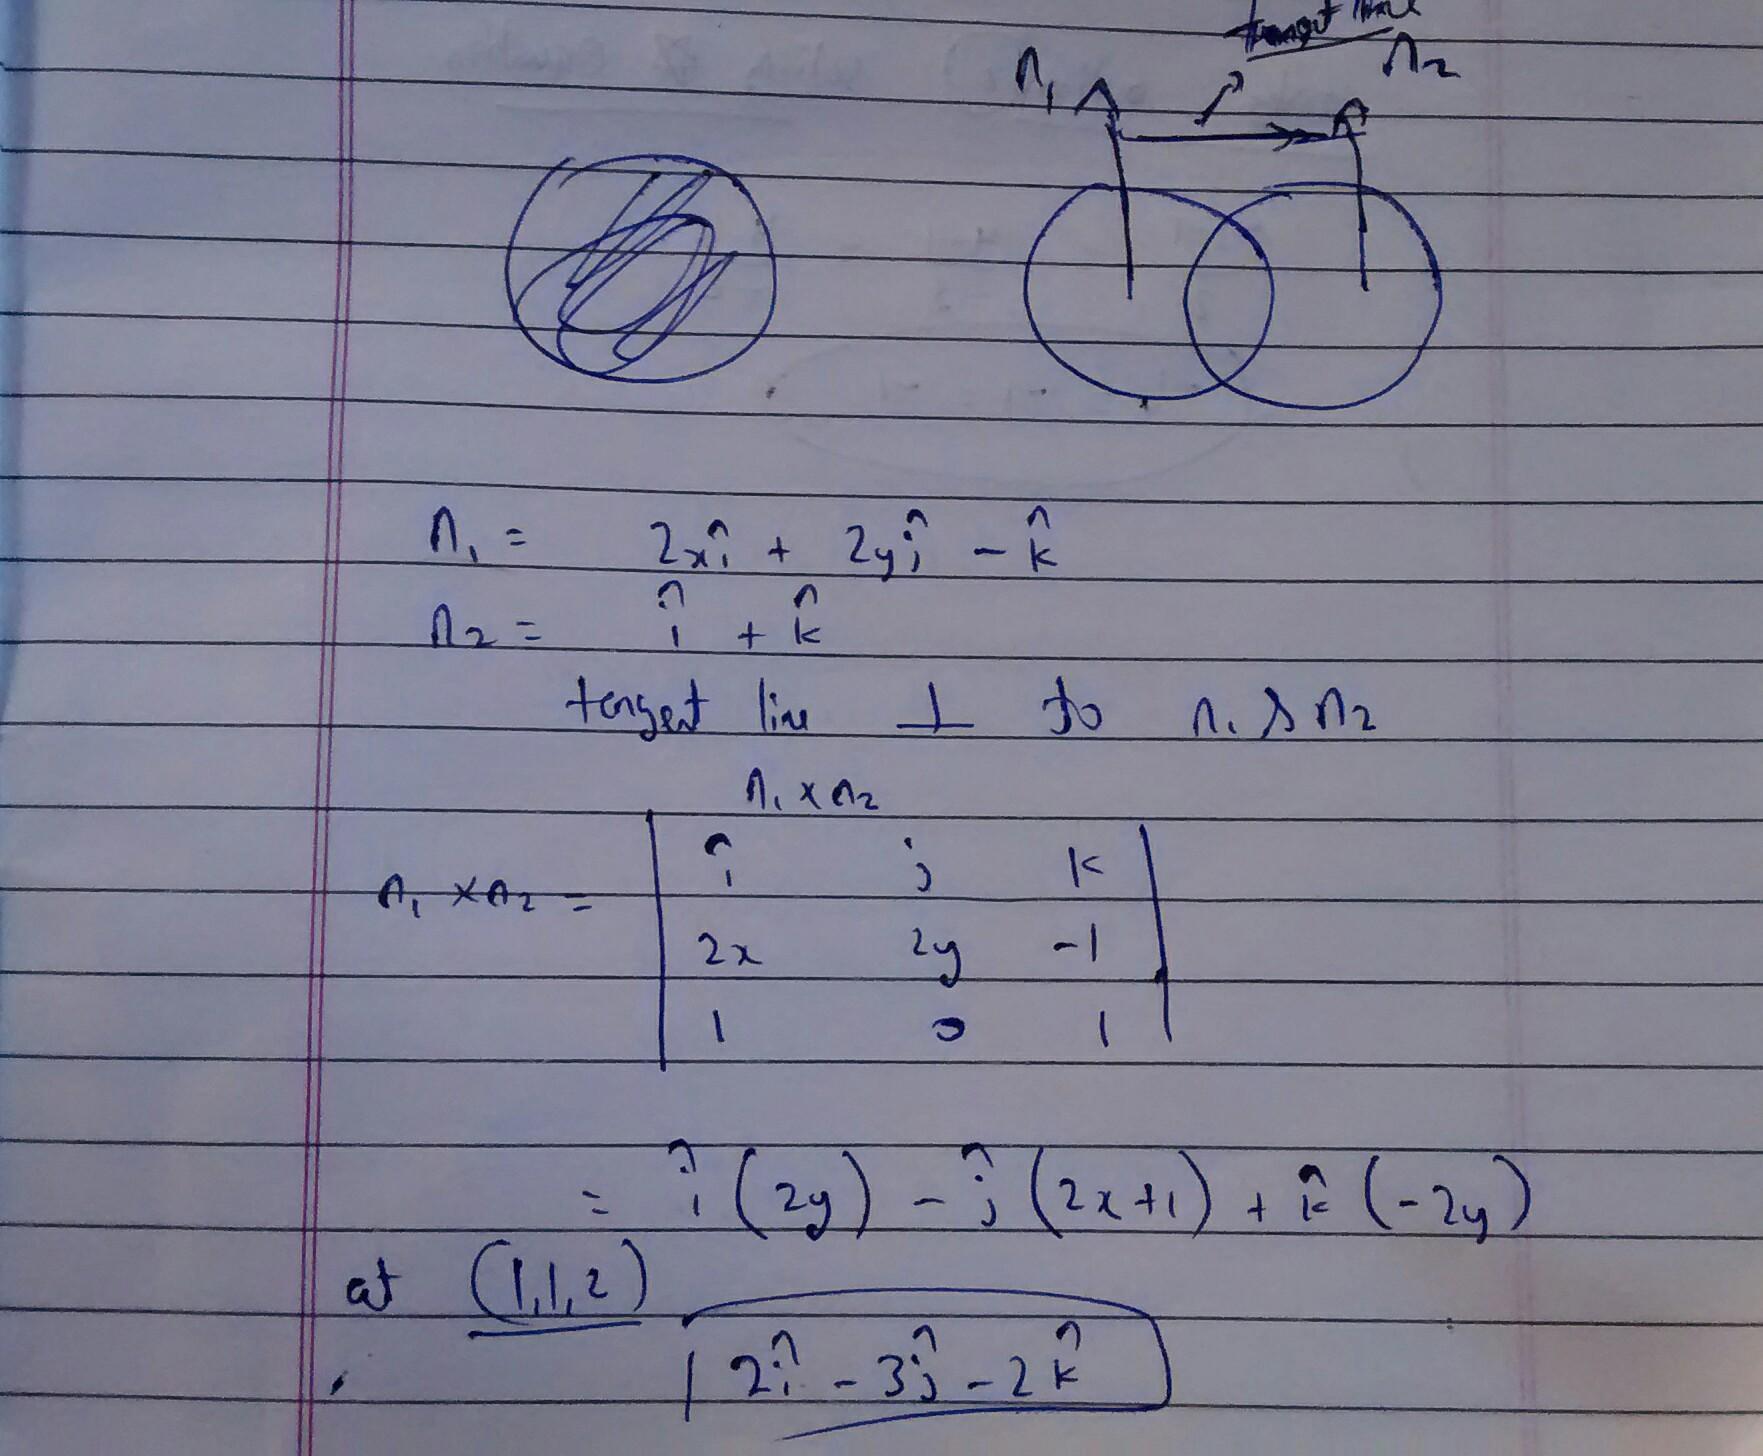 tangent line
n₁ n₂
n₁ = 2xî + 2yĵ - k̂
n₂ = î + k̂
tangent line ⊥ to n₁ & n₂
n₁ × n₂
n₁ × n₂ = | î j k |
| 2x 2y -1 |
| 1 0 1 |
= î (2y) - ĵ (2x+1) + k̂ (-2y)
at (1,1,2)
2î - 3ĵ - 2k̂